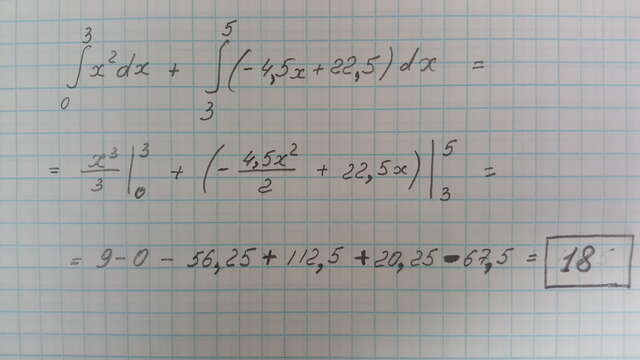 ∫₀³ x² dx + ∫₃⁵ (-4,5x + 22,5) dx =
= x³/3 |₀³ + (- 4,5x²/2 + 22,5x) |₃⁵ =
= 9 - 0 - 56,25 + 112,5 + 20,25 - 67,5 = 18